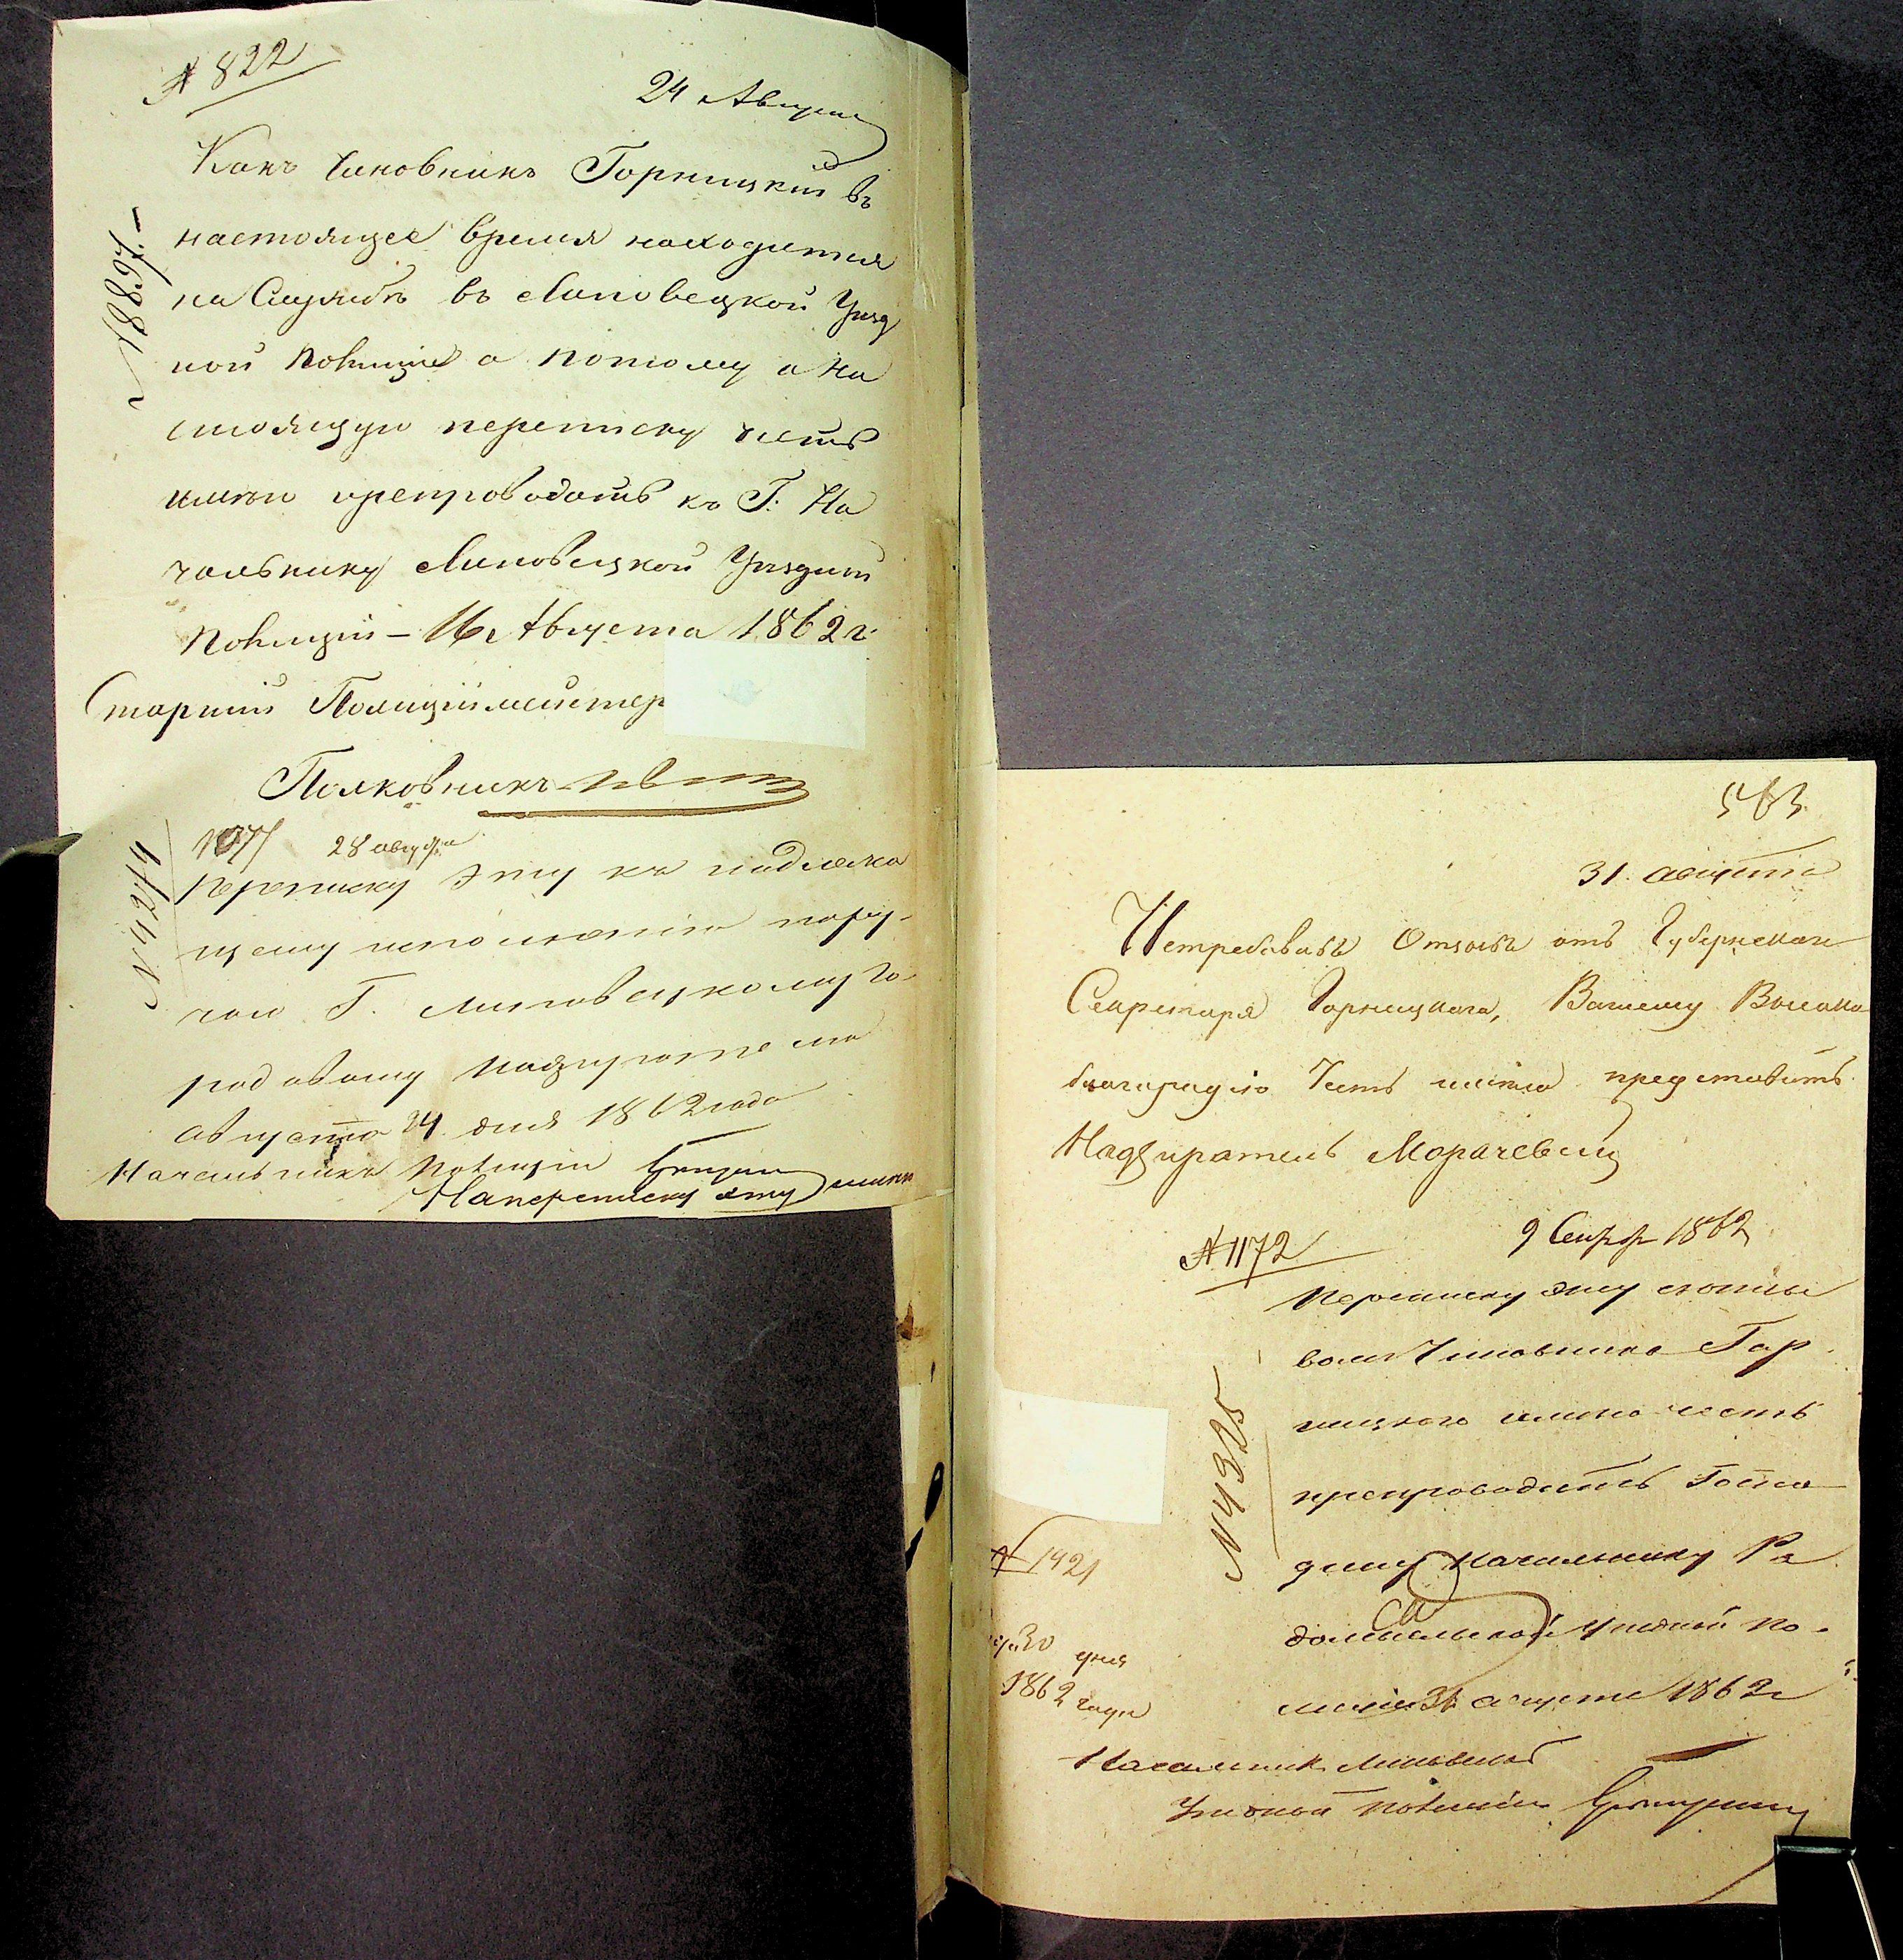 № 822
24 Августа
Какъ Чиновникъ Горницкій въ
настоящее время находится
на Службѣ въ Липовецкой Уѣзд
ной Полиціи а потому а на
стоящую переписку честь
имѣю препроводить къ Г. На
чальнику Липовецкой Уѣздной
Полиціи – 16 Августа 1862 г.
Старшій Полиціймейстер
Полковникъ
№ 18897. –
1077 28 августа
Переписку эту къ надлежа
щему исполненію пору-
чаю Г. Липовецкому Го-
родовому Надзирателю
Августа 24 дня 1862 года
Начальникъ Полиціи
На переписку эту
№ 4274
563
31. августа
Истребовавъ Отзывъ отъ Губернскаго
Секретаря Горницкаго, Вашему Высоко
благородію Честь имѣю представить.
Надзиратель Морачевскій
№ 1172
9 Сентр 1862
Переписку эту съ отзы
вомъ Чиновника Гор
ницкаго имѣю честь
препроводить Госпо
дину Начальнику Ра
домысльской Уѣздной По-
лиціи 31 августа 1862 г
Начальник Липовецкой
Уѣздной Полиціи
№ 4325
№ 1421
30 дня
1862 года